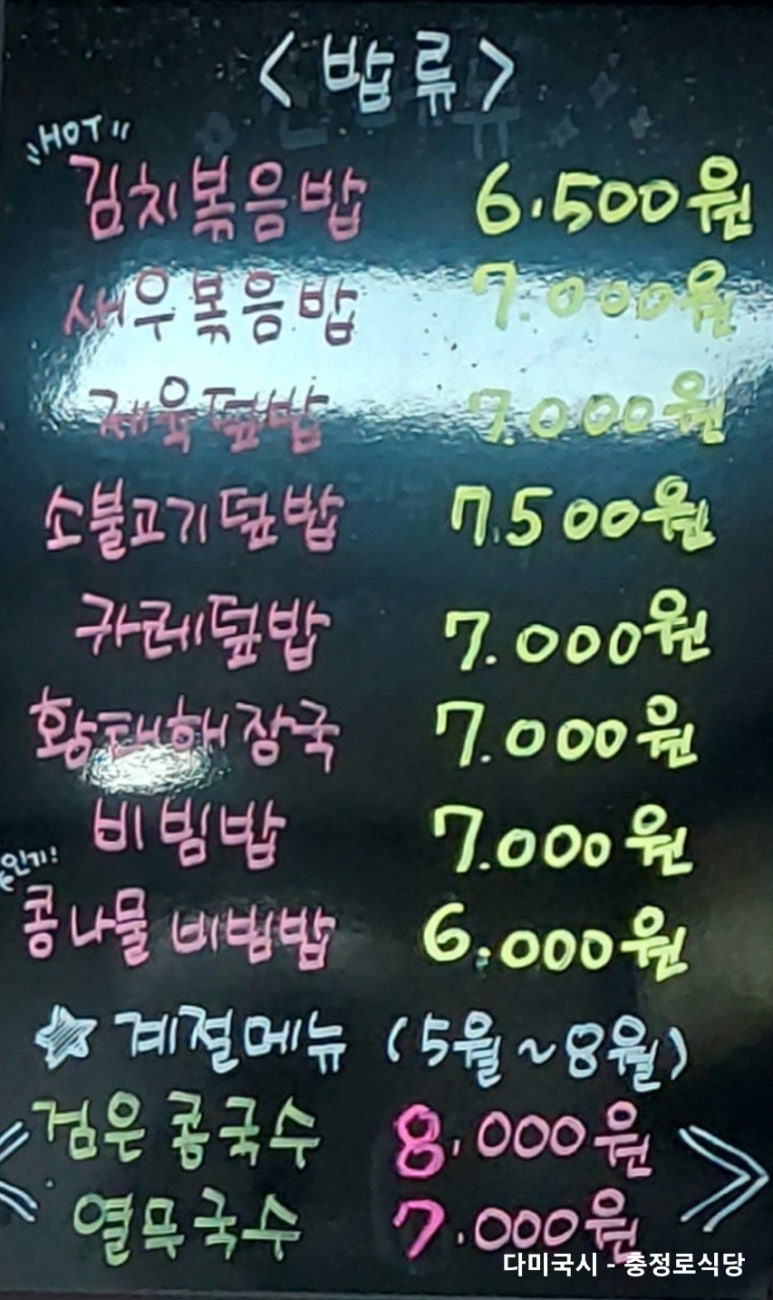 <밥류>
"HOT"
김치볶음밥 6,500원
새우볶음밥 7.000원
제육덮밥 7.000원
소불고기덮밥 7.500원
카레덮밥 7.000원
황태해장국 7.000원
비빔밥 7.000원
인기!
콩나물 비빔밥 6,000원
☆ 계절메뉴 (5월~8월)
검은콩국수 8,000원
열무국수 7.000원
다미국시 - 충정로식당